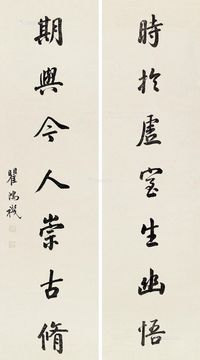 時於虛室生幽悟
期與今人崇古脩
瞿鴻禨